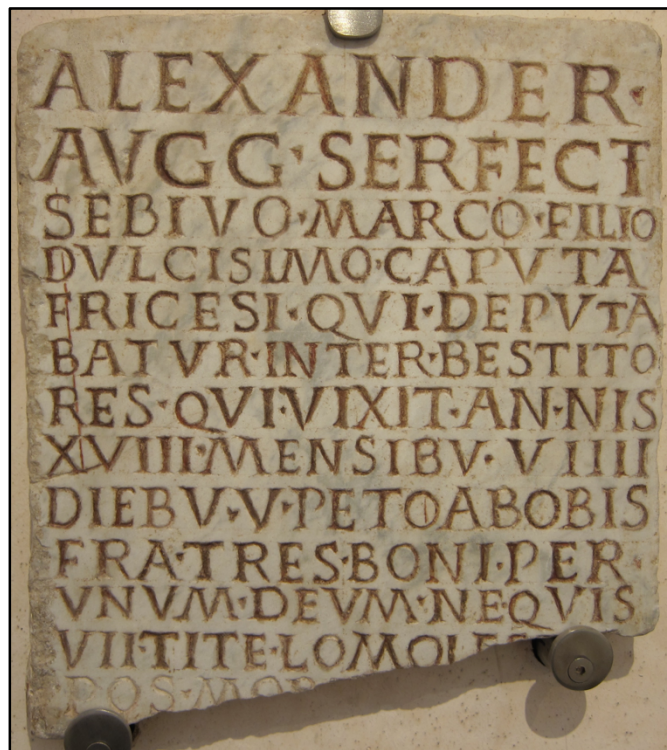 ALEXANDER·
AVGG·SERFECT
SEBIVO·MARCO·FILIO
DVLCISIMO·CAPVTA
FRICESI·QVI·DEPVTA
BATVR·INTER·BESTITO
RES·QVI·VIXIT·AN·NIS
XVIII·MENSIBV·VIIII
DIEBV·V·PETOABOBIS
FRA·TRES·BONI·PER·
VNVM·DEVM·NE·QVIS
VII·TITE·LO
POS·